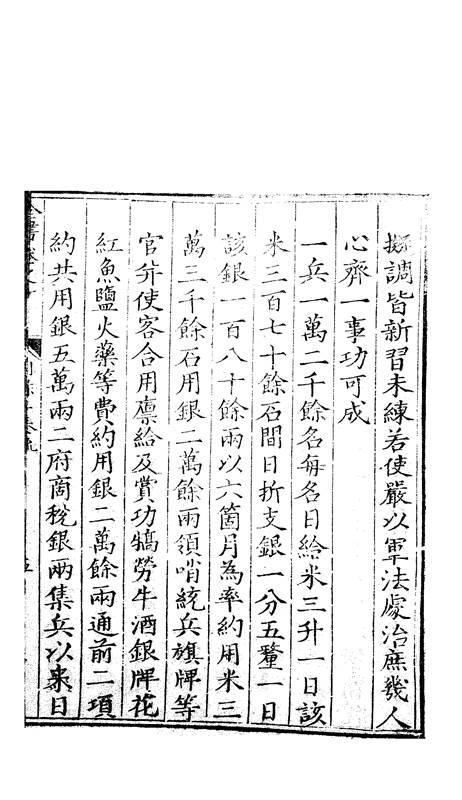 擬調皆新習未練若使嚴以軍法處治庶幾人
心齊一事功可成
一兵一萬二千餘名每名日給米三升一日該
米三百七十餘石間日折支銀一分五釐一日
該銀一百八十餘兩以六箇月為率約用米三
萬三千餘石用銀二萬餘兩領哨統兵旗牌等
官并使客合用廪給及賞功犒勞牛酒銀牌花
紅魚鹽火藥等費約用銀二萬餘兩通前二項
約共用銀五萬兩二府商稅銀兩集兵以來日